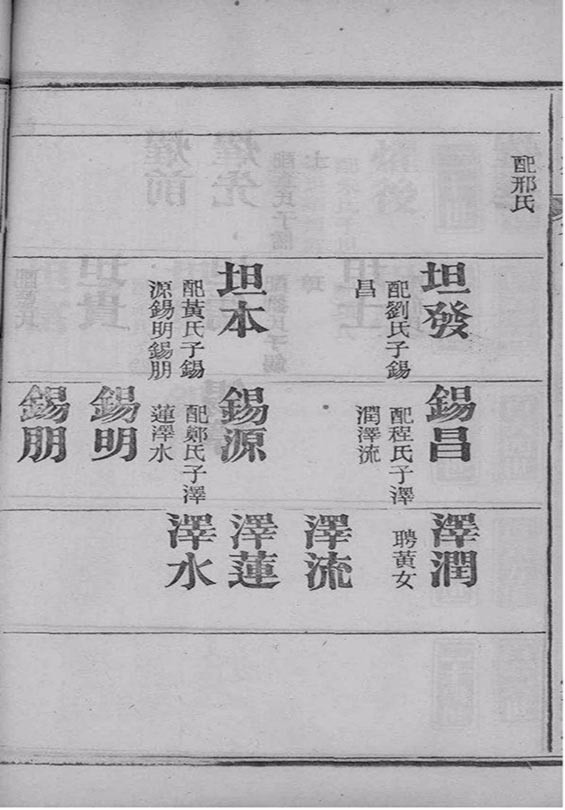 配邢氏
坦發
配劉氏子錫
昌
坦本
配黃氏子錫
源錫明錫朋
錫昌
配程氏子澤
潤澤流
錫源
配鄭氏子澤
蓮澤水
錫明
錫朋
澤潤
聘黃女
澤流
澤蓮
澤水